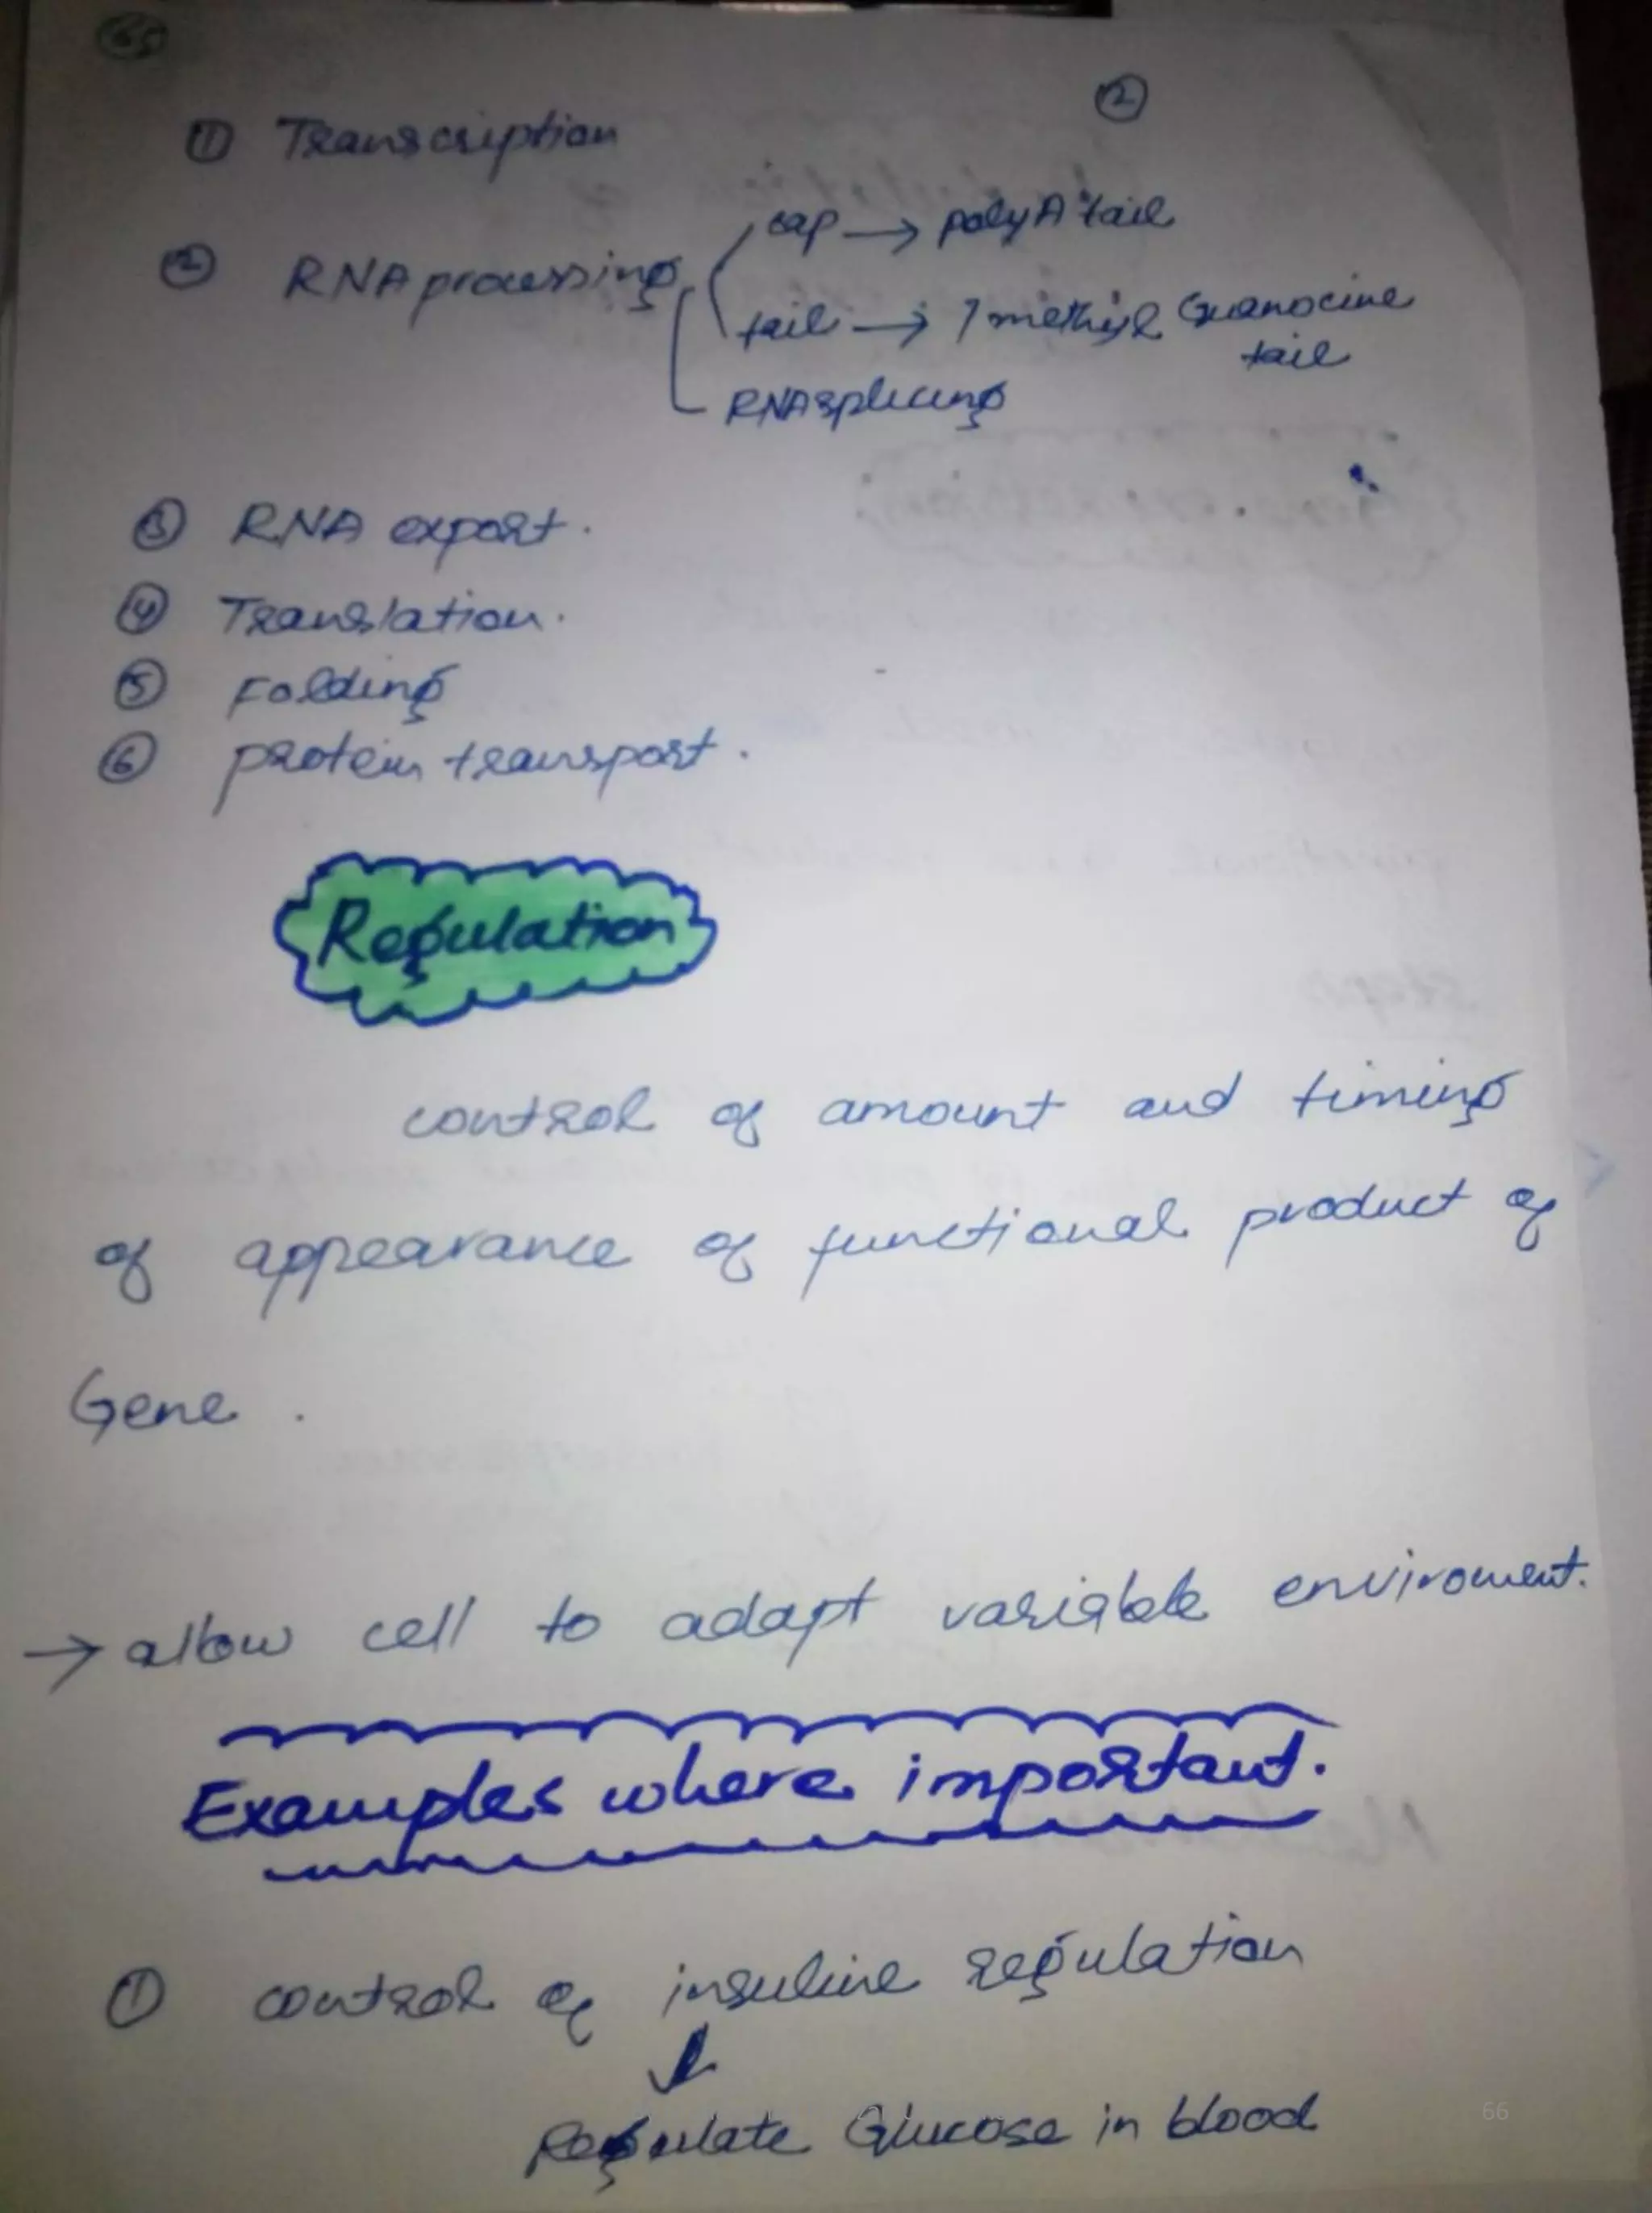 65
②
① Transcription
② RNA processing
cap → polyA tail
tail → 7 methyl Guanocine
tail
RNA splicing
③ RNA export.
④ Translation.
⑤ Folding
⑥ protein transport.
Regulation
control of amount and timing
of appearance of functional product of
Gene.
→ allow cell to adapt variable enviroment.
Examples where important.
① control of insuline regulation
↓
Regulate Glucose in blood
66